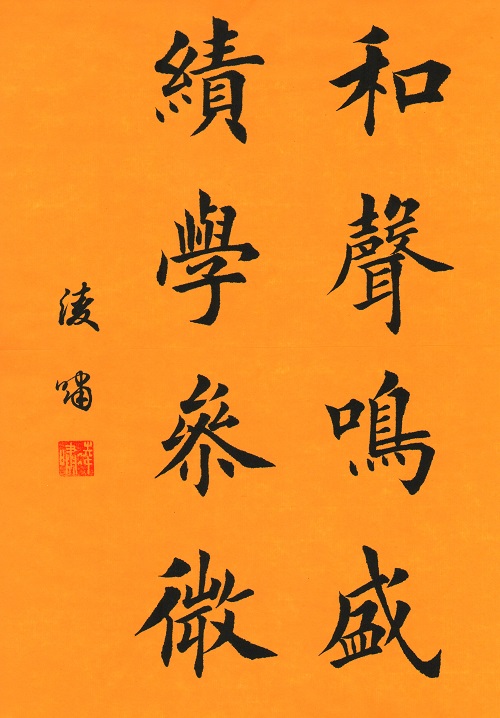 和聲鳴盛
績學參微
淩嘯